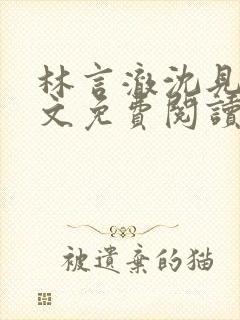 林言澈沈見
文免費閱讀
被遺棄的猫